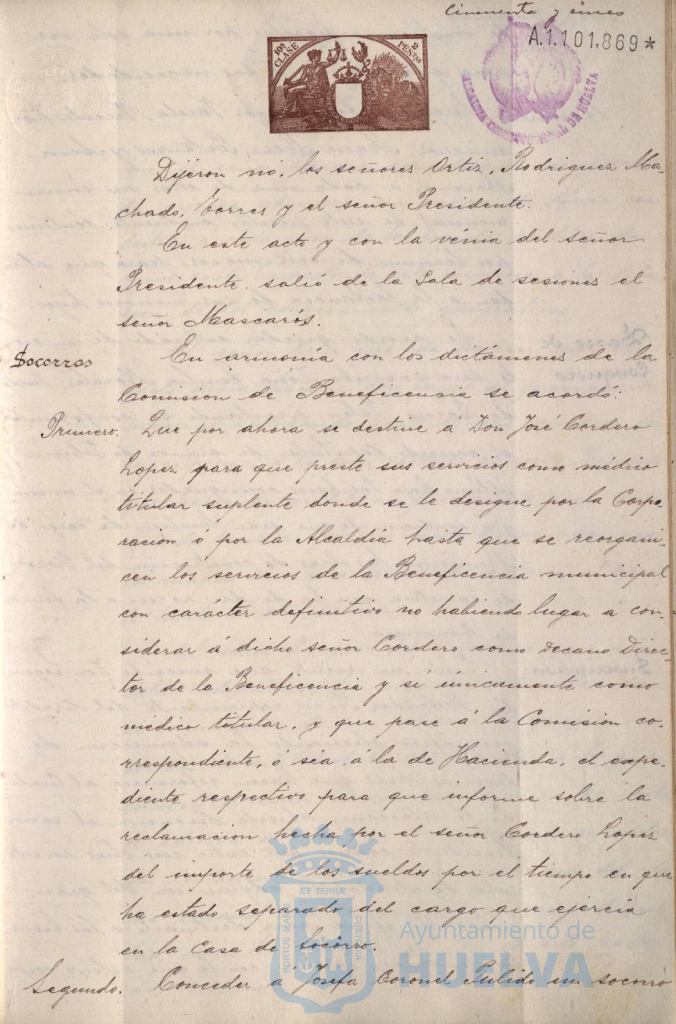 Cincuenta y cinco
A.1.101.869*
10ª CLASE
2 PESETAS
ALCALDIA CONSTITUCIONAL DE HUELVA
Dijéron nó, los señores Ortiz, Rodriguez Ma-
chado, Torres y el señor Presidente.
En este acto y con la vénia del señor
Presidente salió de la Sala de sesiones el
señor Mascarós.
Socorros
En armonía con los dictámenes de la
Comision de Beneficensia se acordó:
Primero. Que por ahora se destine á Don José Cordero
Lopez para que preste sus servicios como médico
titular suplente donde se le designe por la Corpo-
racion ó por la Alcaldía hasta que se reorgani-
cen los servicios de la Beneficencia municipal
con carácter definitivo no habiendo lugar á con-
siderar á dicho señor Cordero como decano Direc-
tor de la Beneficencia y sí únicamente como
médico titular, y que pase á la Comision co-
rrespondiente, ó séa á la de Hacienda, el expe-
diente respectivo para que informe sobre la
reclamacion hecha por el señor Cordero Lopez
del importe de los sueldos por el tiempo en que
ha estado separado del cargo que ejercia
en la Casa de Socorro.
Segundo. Conceder a Josefa Coronel Pulido un socorro
PORTUS MARIS ET TERRAE CUSTODIA
Ayuntamiento de
HUELVA